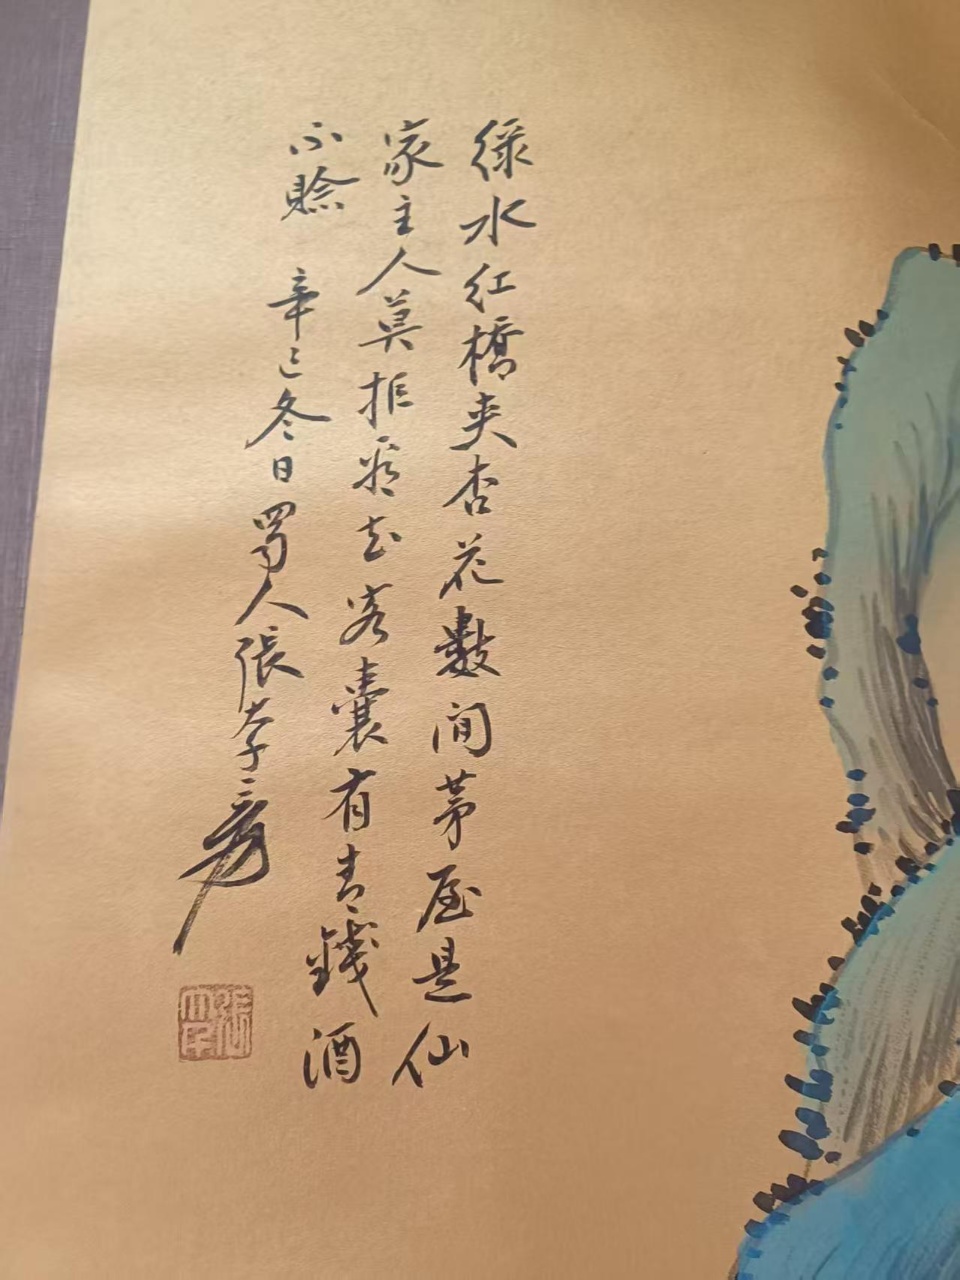 綠水紅橋夾杏花數間茅屋是仙
家主人莫拒看花客囊有青錢酒
不賒 辛巳冬日蜀人張大千爰